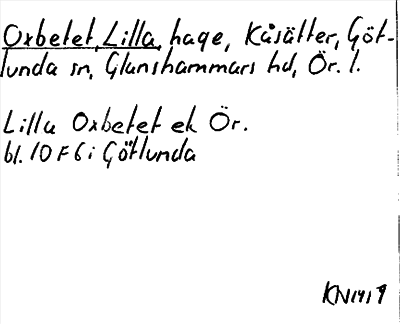 Oxbetet, Lilla, hage, Kåsätter, Göt-
lunda sn, Glanshammars hd, Ör. l.
Lilla Oxbetet ek Ör.
bl. 10 F 6 i Götlunda